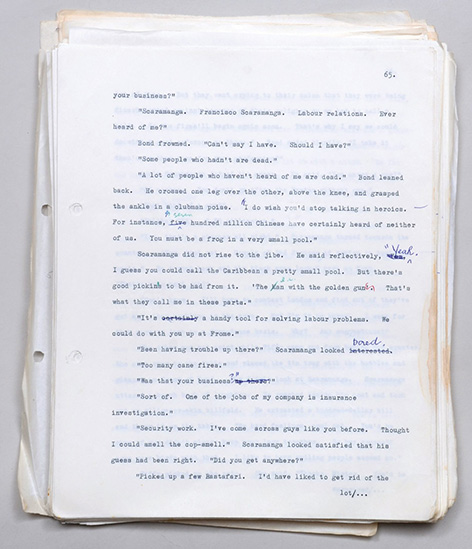 65.
your business?"
"Scaramanga. Francisco Scaramanga. Labour relations. Ever
heard of me?"
Bond frowned. "Can't say I have. Should I have?"
"Some people who hadn't are dead."
"A lot of people who haven't heard of me are dead." Bond leaned
back. He crossed one leg over the other, above the knee, and grasped
the ankle in a clubman poise. "I do wish you'd stop talking in heroics.
seven
For instance, five hundred million Chinese have certainly heard of neither
of us. You must be a frog in a very small pool."
"Yeah.
Scaramanga did not rise to the jibe. He said reflectively,
I guess you could call the Caribbean a pretty small pool. But there's
good pickin's to be had from it. 'The man with the golden gun' That's
what they call me in these parts."
"It's certainly a handy tool for solving labour problems. We
could do with you up at Frome."
bored.
"Been having trouble up there?" Scaramanga looked interested.
"Too many cane fires."
"Was that your business up there?"
"Sort of. One of the jobs of my company is insurance
investigation."
"Security work. I've come across guys like you before. Thought
I could smell the cop-smell." Scaramanga looked satisfied that his
guess had been right. "Did you get anywhere?"
"Picked up a few Rastafari. I'd have liked to get rid of the
lot/...